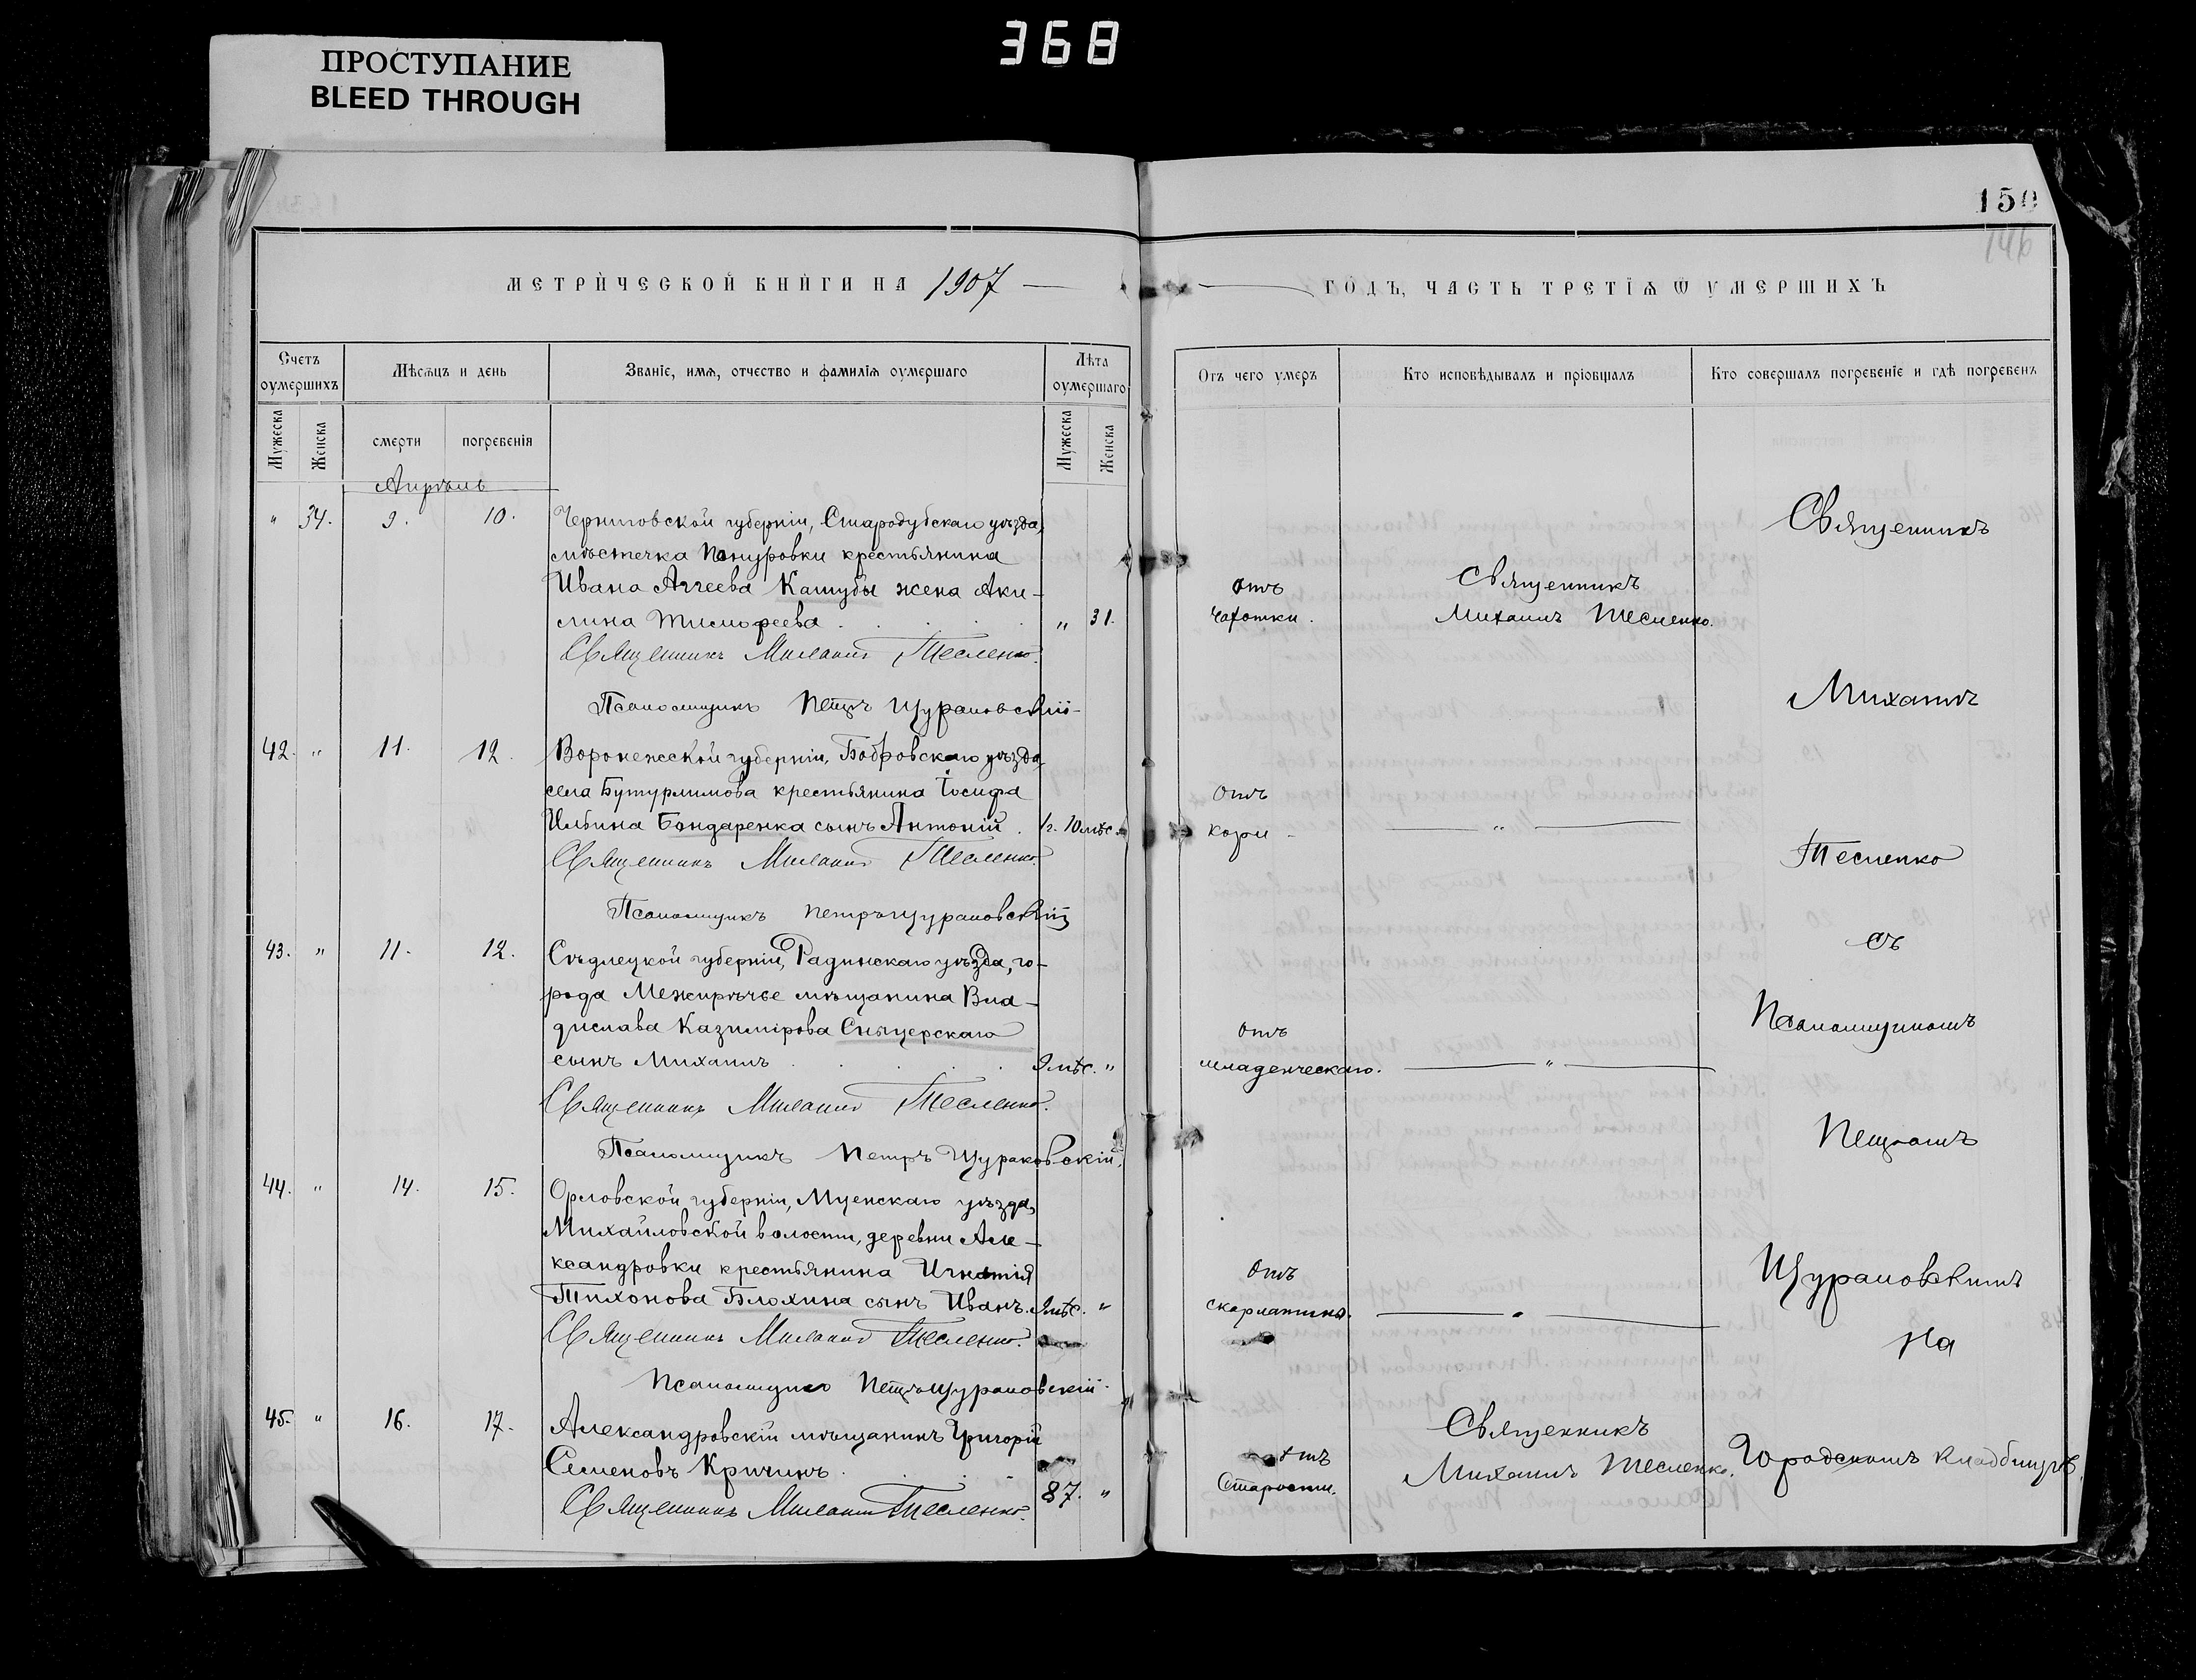 368
ПРОСТУПАНИЕ
BLEED THROUGH
150
146
МЕТРИЧЕСКОЙ КНИГИ НА 1907
ГОДЪ, ЧАСТЬ ТРЕТІѦ Ѿ УМЕРШИХЪ
Счетъ оумершихъ
Мѣсѧцъ и день
Званіе, имѧ, отчество и фамиліѧ оумершаго
Лѣта оумершаго
Отъ чего умеръ
Кто исповѣдывалъ и пріобщалъ
Кто совершалъ погребеніе и гдѣ погребенъ
Мужеска
Женска
смерти
погребенія
Мужеска
Женска
Апрѣль
" 34. 9. 10. Черниговской губерніи, Стародубскаго уѣзда,
мѣстечка Понуровки крестьянина
Ивана Агѣева Кашубы жена Аки-
лина Тимофеева . . . . " 31.
отъ
чахотки.
Священникъ
Михаилъ Тесленко.
Священникъ Михаилъ Тесленко.
Псаломщикъ Петръ Щураковскій
42. " 11. 12. Воронежской губерніи, Бобровскаго уѣзда
села Бутурлинова крестьянина Іосифа
Ильина Бондаренка сынъ Антоній . 1г. 10 мѣс. "
отъ
кори
"
Священникъ Михаилъ Тесленко.
Псаломщикъ Петръ Щураковскій
43. " 11. 12. Сѣдлецкой губерніи, Радинскаго уѣзда, го-
рода Межирѣчье мѣщанина Вла-
дислава Казимірова
сынъ Михаилъ . . . . 9 мѣс. "
отъ
младенческаго.
"
Священникъ Михаилъ Тесленко.
Псаломщикъ Петръ Щураковскій.
44. " 14. 15. Орловской губерніи, Мценскаго уѣзда,
Михайловской волости, деревни Але-
ксандровки крестьянина Игнатія
Тихонова Блохина сынъ Иванъ. 9 мѣс. "
отъ
скарлатины.
"
Священникъ Михаилъ Тесленко.
Псаломщикъ Петръ Щураковскій
45. " 16. 17. Александровскій мѣщанинъ Григорій
Семеновъ Кричинъ . . . 87. "
отъ
Старости.
Священникъ
Михаилъ Тесленко.
Священникъ Михаилъ Тесленко.
Священникъ
Михаилъ
Тесленко
съ
Псаломщикомъ
Петромъ
Щураковскимъ
На
Городскомъ кладбищѣ.